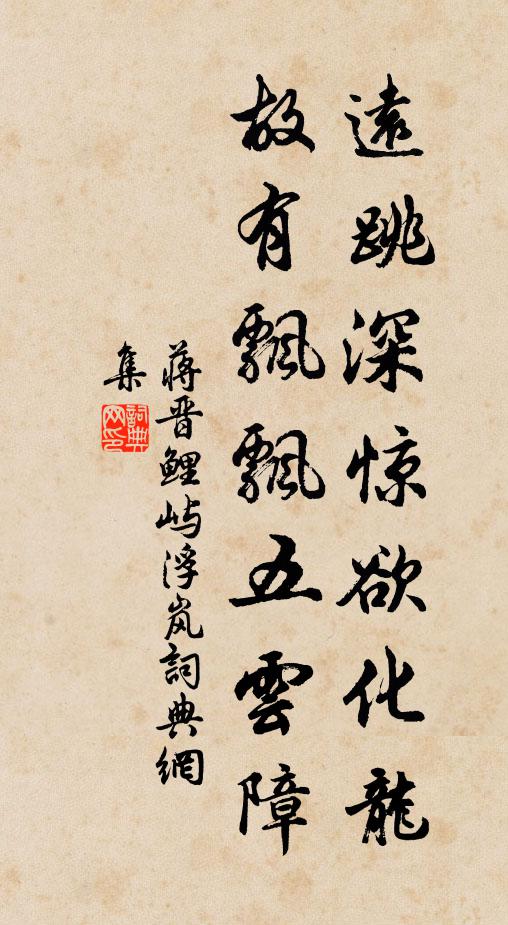 遠跳深惊欲化龍
故有飄飄五雲障
蒋晋鲤屿浮岚詞典網
集
詞典
网印